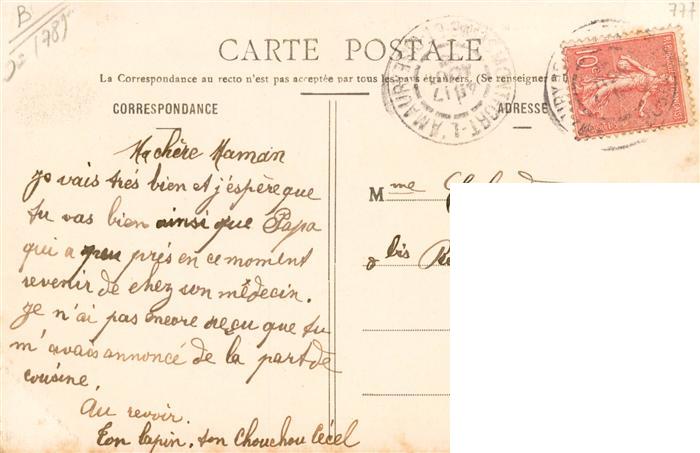 B
777
CARTE POSTALE
La Correspondance au recto n'est pas acceptée par tous les pays étrangers. (Se renseigner à
CORRESPONDANCE
ADRESSE
MONTFORT-L'AMAURY
10
Ma chère Maman
Je vais très bien et j'espère que
tu vas bien ainsi que Papa
qui a peu près en ce moment
revenir de chez son médecin.
Je n'ai pas encore reçu que tu
m'avais annoncé de la part de
cousine.
Au revoir.
Ton lapin, ton Chouchou Cécel
Mme
bis